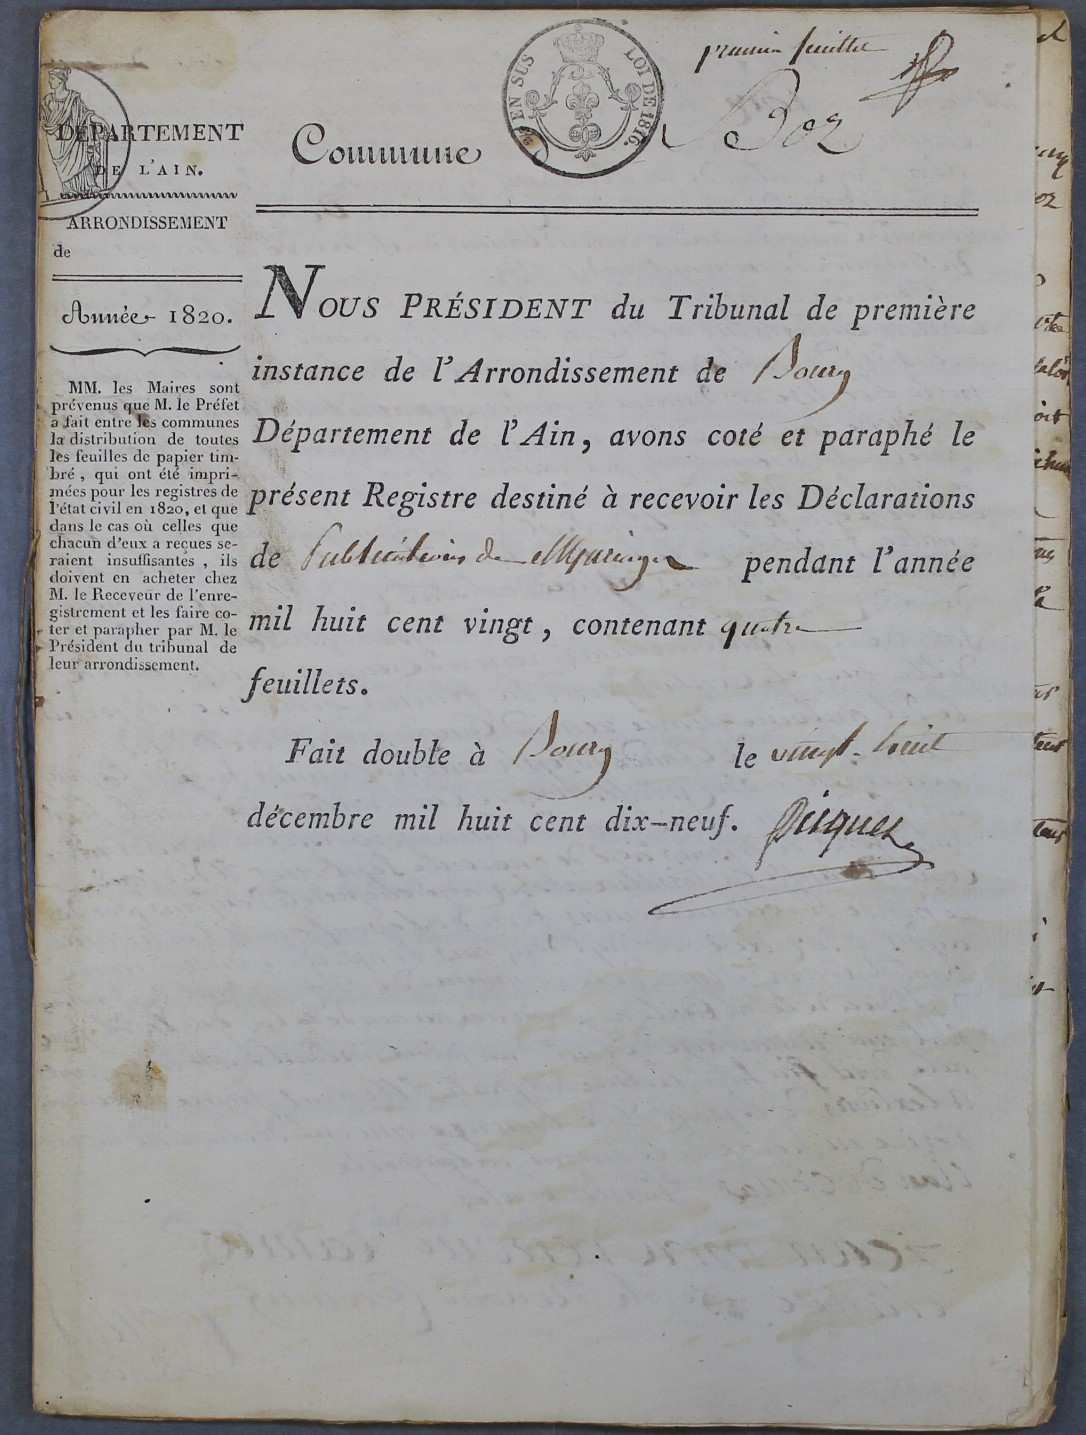 premier feuillet
EN SUS LOI DE 1816.
DÉPARTEMENT
DE L'AIN.
Commune Boz
ARRONDISSEMENT
de
Année 1820.
MM. les Maires sont
prévenus que M. le Préfet
a fait entre les communes
la distribution de toutes
les feuilles de papier tim-
bré, qui ont été impri-
mées pour les registres de
l'état civil en 1820, et que
dans le cas où celles que
chacun d'eux a reçues se-
raient insuffisantes, ils
doivent en acheter chez
M. le Receveur de l'enre-
gistrement et les faire co-
ter et parapher par M. le
Président du tribunal de
leur arrondissement.
NOUS PRÉSIDENT du Tribunal de première
instance de l'Arrondissement de Bourg
Département de l'Ain, avons coté et paraphé le
présent Registre destiné à recevoir les Déclarations
de Publications de Mariages pendant l'année
mil huit cent vingt, contenant quatre
feuillets.
Fait double à Bourg le vingt-huit
décembre mil huit cent dix-neuf. Picquet